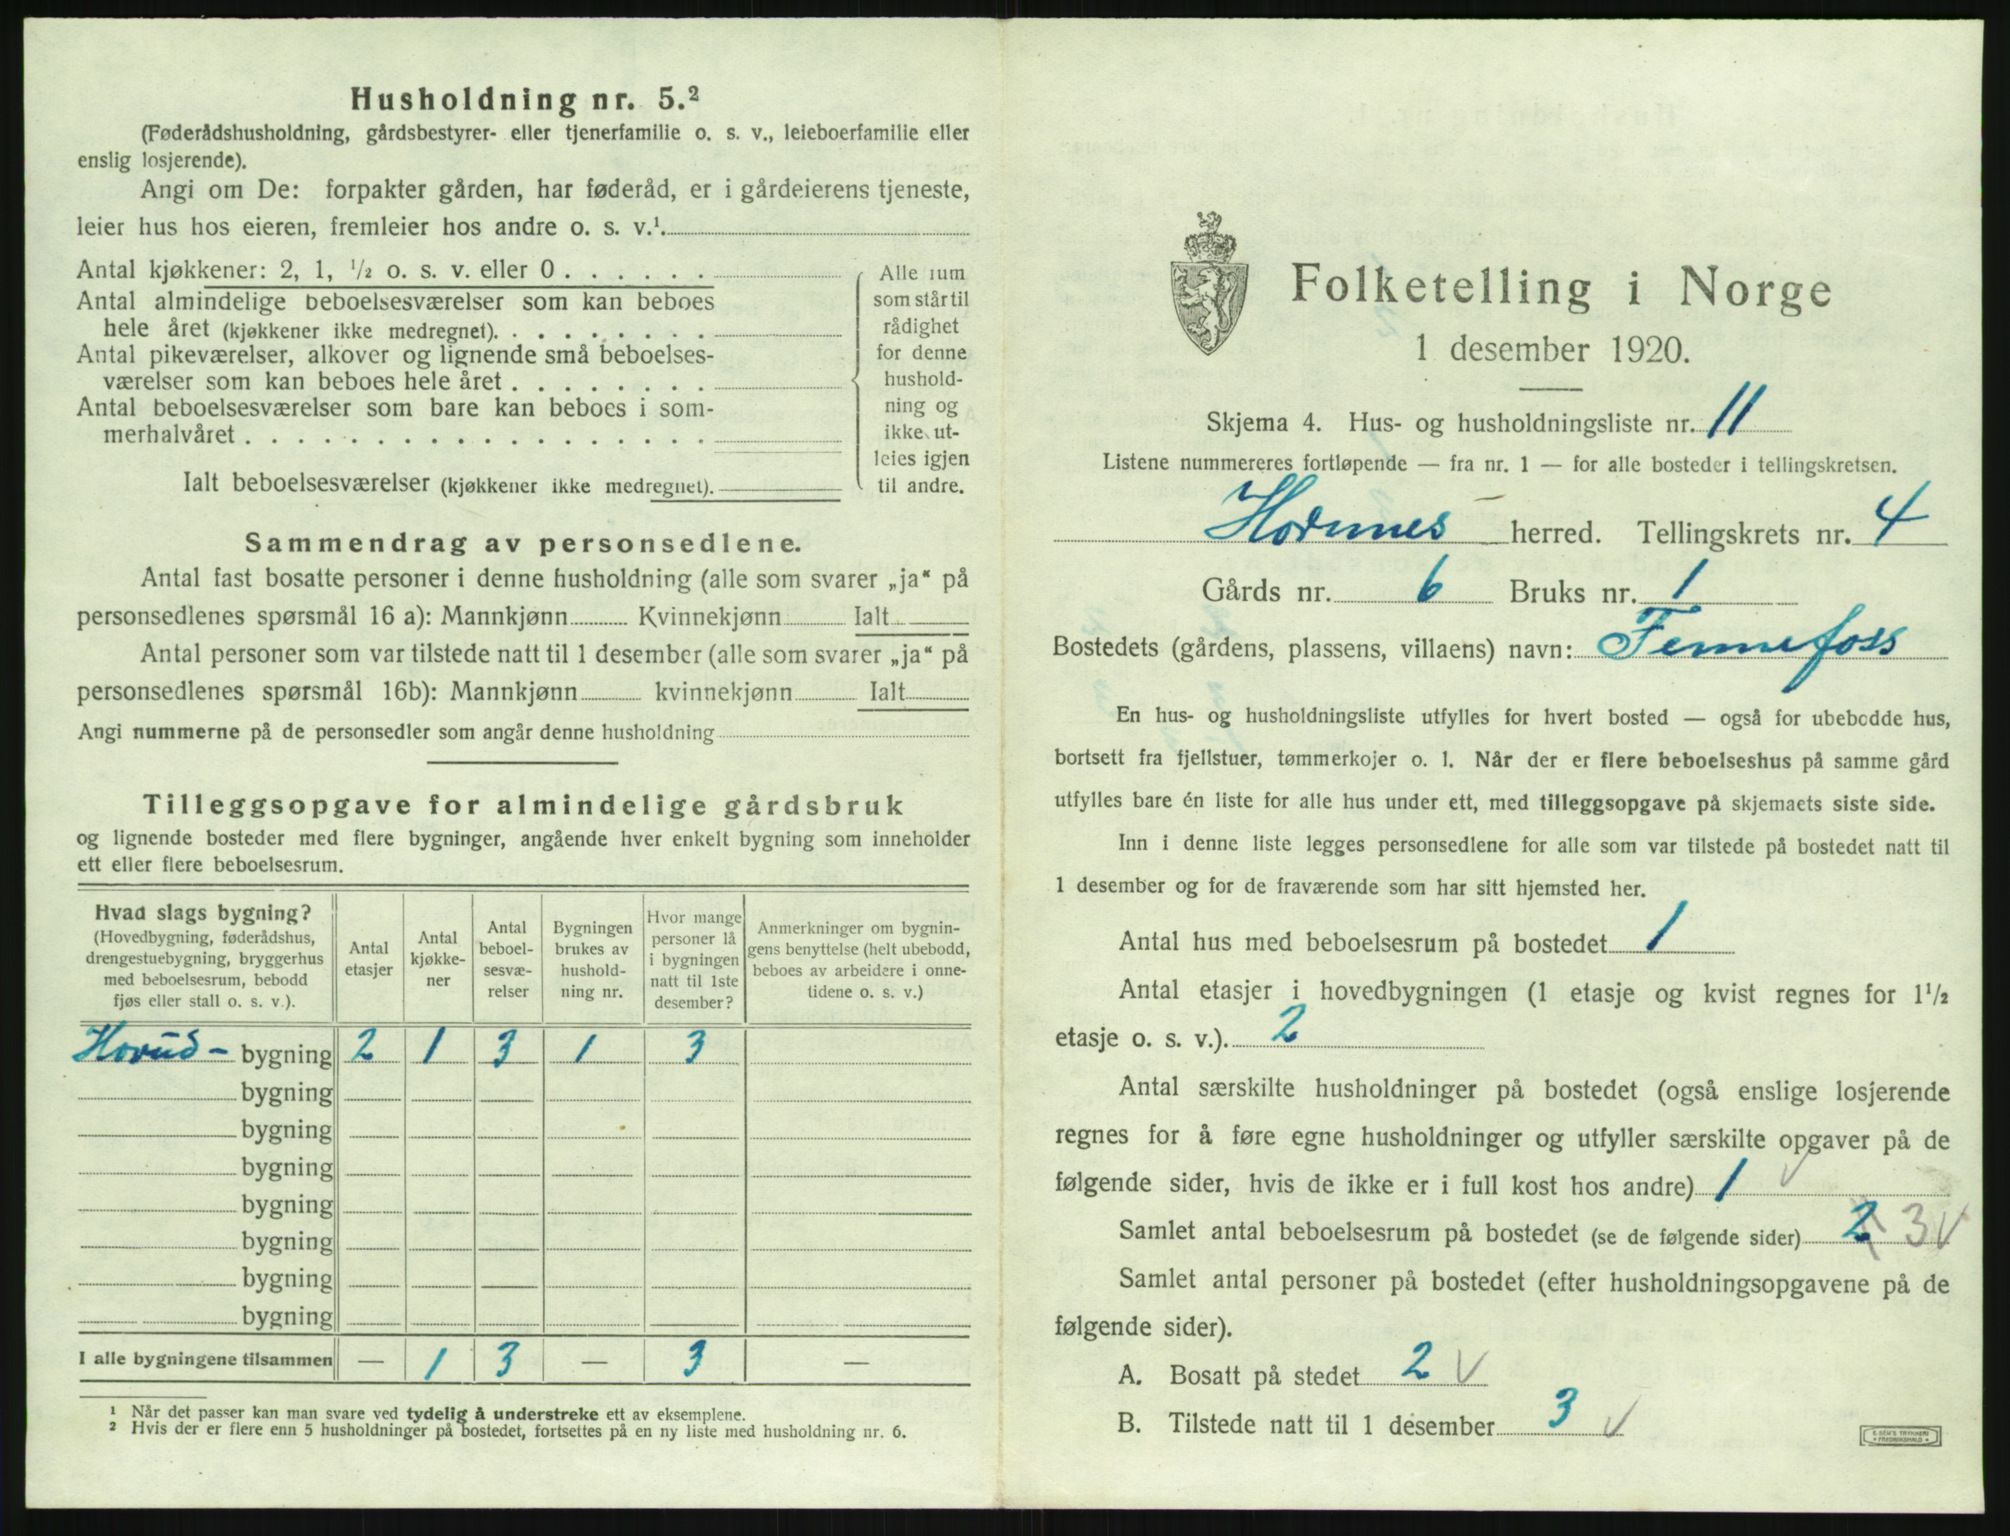 Husholdning nr. 5.²
(Føderådshusholdning, gårdsbestyrer- eller tjenerfamilie o. s. v., leieboerfamilie eller
enslig losjerende).
Angi om De: forpakter gården, har føderåd, er i gårdeierens tjeneste,
leier hus hos eieren, fremleier hos andre o. s. v.¹.
Antal kjøkkener: 2, 1, ½ o. s. v. eller 0 . . . . . .
Antal almindelige beboelsesværelser som kan beboes
hele året (kjøkkener ikke medregnet). . . . . . . . .
Antal pikeværelser, alkover og lignende små beboelses-
værelser som kan beboes hele året . . . . . . . .
Antal beboelsesværelser som bare kan beboes i som-
merhalvåret . . . . . . . . . . . . . . . . . .
Ialt beboelsesværelser (kjøkkener ikke medregnet).
Alle rum
som står til
rådighet
for denne
hushold-
ning og
ikke ut-
leies igjen
til andre.
Sammendrag av personsedlene.
Antal fast bosatte personer i denne husholdning (alle som svarer „ja“ på
personsedlenes spørsmål 16 a): Mannkjønn Kvinnekjønn Ialt
Antal personer som var tilstede natt til 1 desember (alle som svarer „ja“ på
personsedlenes spørsmål 16b): Mannkjønn kvinnekjønn Ialt
Angi nummerne på de personsedler som angår denne husholdning
Tilleggsopgave for almindelige gårdsbruk
og lignende bosteder med flere bygninger, angående hver enkelt bygning som inneholder
ett eller flere beboelsesrum.
Hvad slags bygning?
(Hovedbygning, føderådshus,
drengestuebygning, bryggerhus
med beboelsesrum, bebodd
fjøs eller stall o. s. v.).
Antal
etasjer
Antal
kjøkke-
ner
Antal
beboel-
sesvæ-
relser
Bygningen
brukes av
hushold-
ning nr.
Hvor mange
personer lå
i bygningen
natt til 1ste
desember?
Anmerkninger om bygnin-
gens benyttelse (helt ubebodd,
beboes av arbeidere i onne-
tidene o. s. v.)
Hovud- bygning 2 1 3 1 3
bygning
bygning
bygning
bygning
bygning
bygning
bygning
I alle bygningene tilsammen — 1 3 — 3 —
¹ Når det passer kan man svare ved tydelig å understreke ett av eksemplene.
² Hvis der er flere enn 5 husholdninger på bostedet, fortsettes på en ny liste med husholdning nr. 6.
Folketelling i Norge
1 desember 1920.
Skjema 4. Hus- og husholdningsliste nr. 11
Listene nummereres fortløpende — fra nr. 1 — for alle bosteder i tellingskretsen.
Hornnes herred. Tellingskrets nr. 4
Gårds nr. 6 Bruks nr. 1
Bostedets (gårdens, plassens, villaens) navn: Fennefoss
En hus- og husholdningsliste utfylles for hvert bosted — også for ubebodde hus,
bortsett fra fjellstuer, tømmerkojer o. l. Når der er flere beboelseshus på samme gård
utfylles bare én liste for alle hus under ett, med tilleggsopgave på skjemaets siste side.
Inn i denne liste legges personsedlene for alle som var tilstede på bostedet natt til
1 desember og for de fraværende som har sitt hjemsted her.
Antal hus med beboelsesrum på bostedet 1
Antal etasjer i hovedbygningen (1 etasje og kvist regnes for 1½
etasje o. s. v.). 2
Antal særskilte husholdninger på bostedet (også enslige losjerende
regnes for å føre egne husholdninger og utfyller særskilte opgaver på de
følgende sider, hvis de ikke er i full kost hos andre) 1 √
Samlet antal beboelsesrum på bostedet (se de følgende sider) 2 3 √
Samlet antal personer på bostedet (efter husholdningsopgavene på de
følgende sider).
A. Bosatt på stedet 2 √
B. Tilstede natt til 1 desember 3 √
E. SEM'S TRYKKERI
• FREDRIKSHALD •